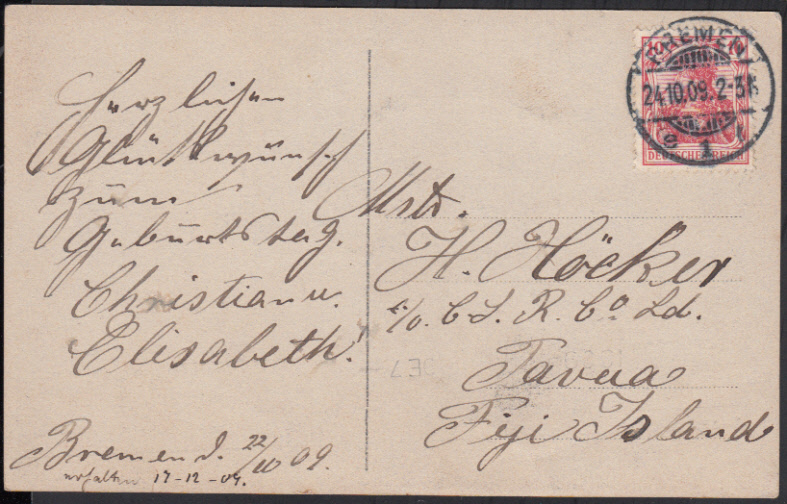 Herzlichen
Glückwünsch
zum
Geburtstag.
Christian u.
Elisabeth!
Bremen d. 22/10 09.
erhalten 17-12-09.
10 10
BREMEN
24.10.09. 2-3
1
DEUTSCHES REICH
Mstr.
H. Höcker
c/o. C. S. R. Co Ld.
Tavua
Fiji Island